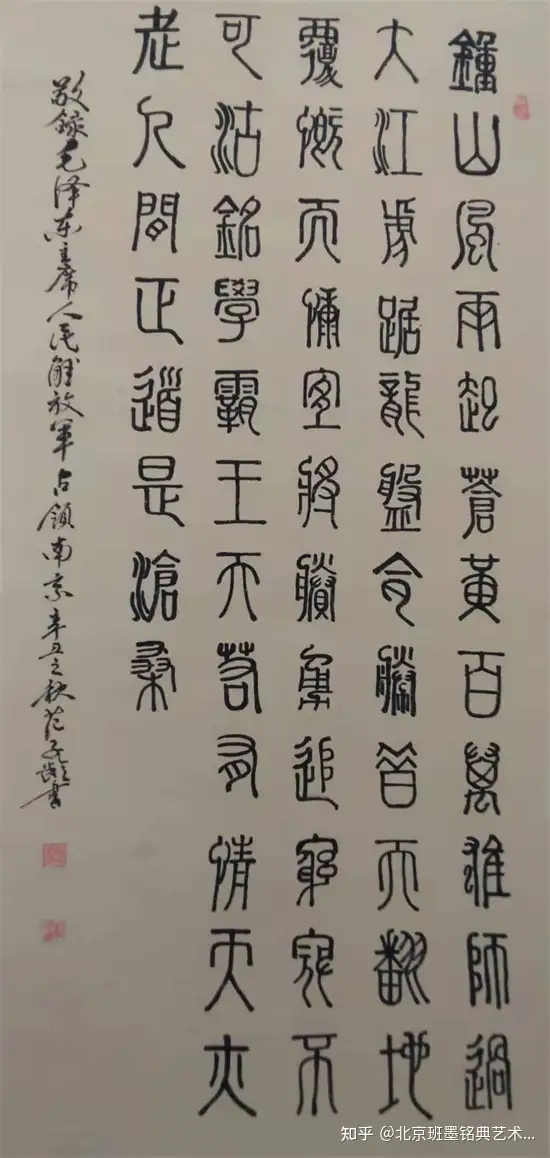 鐘山風雨起蒼黃百萬雄師過
大江虎踞龍盤今勝昔天翻地
覆慨而慷宜將勝勇追窮寇不
可沽銘學霸王天若有情天亦
老人間正道是滄桑
敬錄毛泽东主席人民解放军占領南京辛丑之秋范子書
知乎 @北京班墨铭典艺术...